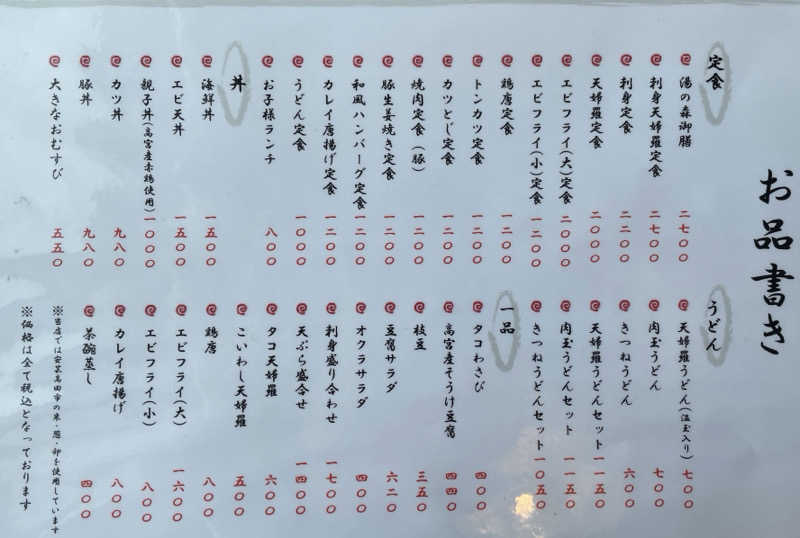 お品書き
定食
湯の森御膳 二七〇〇
刺身天婦羅定食 二七〇〇
刺身定食 二二〇〇
天婦羅定食 二〇〇〇
エビフライ(大)定食 二〇〇〇
エビフライ(小)定食 一二〇〇
鶏唐定食 一二〇〇
トンカツ定食 一二〇〇
カツとじ定食 一二〇〇
焼肉定食(豚) 一二〇〇
豚生姜焼き定食 一二〇〇
和風ハンバーグ定食 一二〇〇
カレイ唐揚げ定食 一二〇〇
うどん定食 一〇〇〇
お子様ランチ 八〇〇
丼
海鮮丼 一五〇〇
エビ天丼 一五〇〇
親子丼(高宮産赤鶏使用) 一〇〇〇
カツ丼 九八〇
豚丼 九八〇
大きなおむすび 五五〇
うどん
天婦羅うどん(温玉入り) 七〇〇
肉玉うどん 七〇〇
きつねうどん 六〇〇
天婦羅うどんセット 一一五〇
肉玉うどんセット 一一五〇
きつねうどんセット 一〇五〇
一品
タコわさび 四〇〇
高宮産そうけ豆腐 四四〇
枝豆 三五〇
豆腐サラダ 六二〇
オクラサラダ 四〇〇
刺身盛り合わせ 一七〇〇
天ぷら盛合せ 一四〇〇
タコ天婦羅 六〇〇
こいわし天婦羅 五〇〇
鶏唐 八〇〇
エビフライ(大) 一六〇〇
エビフライ(小) 八〇〇
カレイ唐揚げ 八〇〇
茶碗蒸し 四〇〇
※当店では安芸高田市の米・葱・卵を使用しています
※価格は全て税込となっております